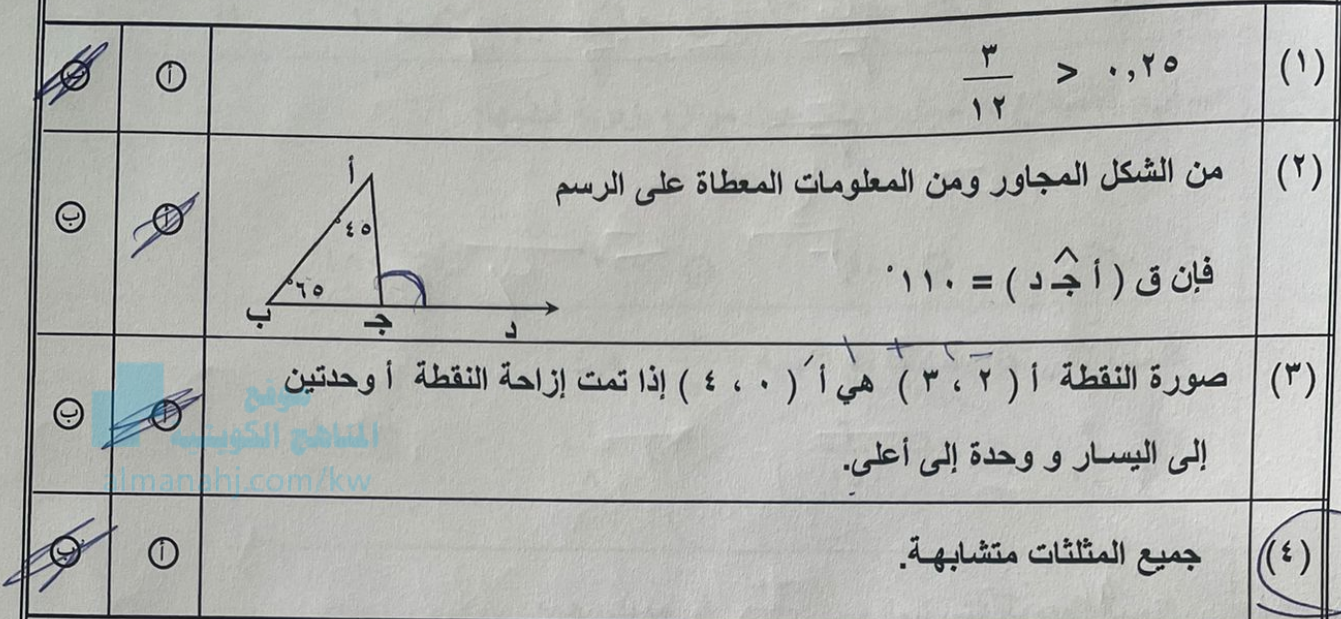 (١) ٠,٢٥ > ٣/١٢ أ ب
(٢) من الشكل المجاور ومن المعلومات المعطاة على الرسم أ ب
فإن ق ( أ جـ د ) = ١١٠°
أ
٤٥
٦٥
ب جـ د
- ٢ + ١
(٣) صورة النقطة أ ( ٢ ، ٣ ) هي أَ ( ٠ ، ٤ ) إذا تمت إزاحة النقطة أ وحدتين أ ب
إلى اليسار و وحدة إلى أعلى.
موقع
المناهج الكويتية
almanahj.com/kw
(٤) جميع المثلثات متشابهة. أ ب